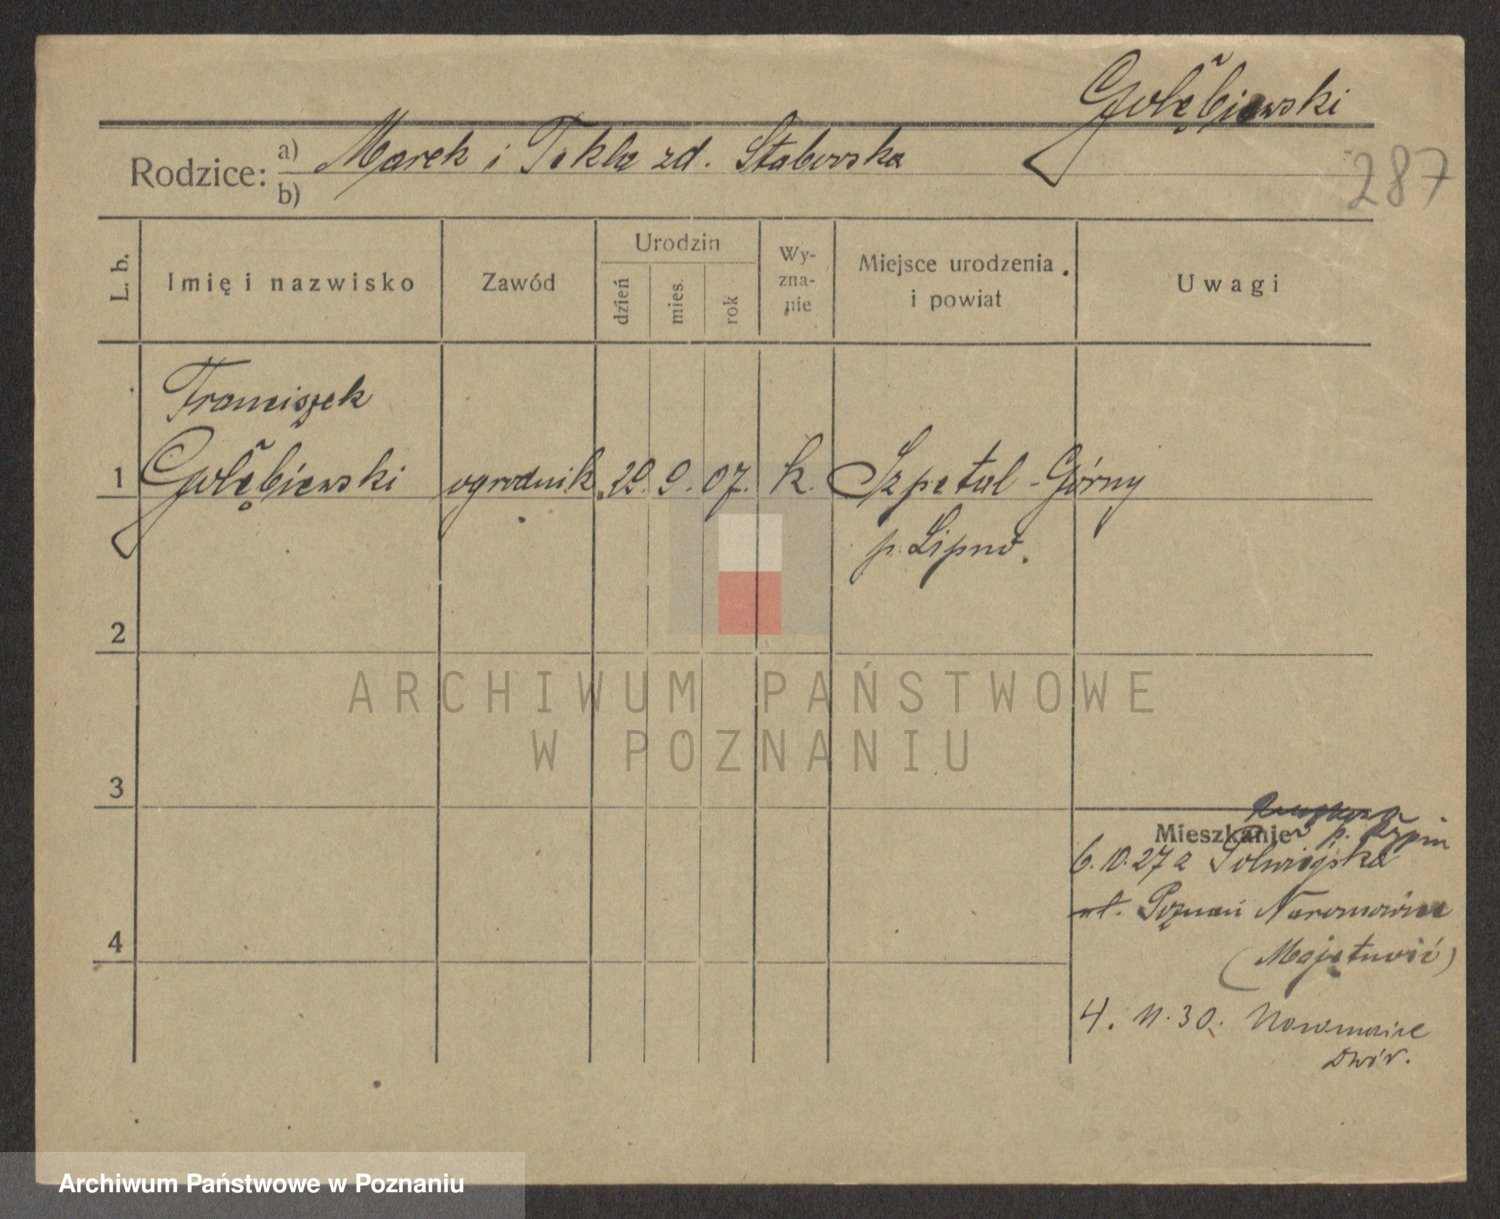 Gołębiewski
Rodzice: a) Marek i Tekla zd. Staborska
b)
287
L. b.
Imię i nazwisko
Zawód
Urodzin
dzień
mies.
rok
Wy-
zna-
nie
Miejsce urodzenia
i powiat
Uwagi
Franciszek
1 Gołębiewski ogrodnik 29. 9. 07. k. Szpetal-Górny
p. Lipno.
2
ARCHIWUM PAŃSTWOWE
W POZNANIU
3
Mieszkanie
p. Rypin
6.10.27 z
Poznań Naramowice
(Majętność)
4
4. 11. 30.
Dwór.
Archiwum Państwowe w Poznaniu